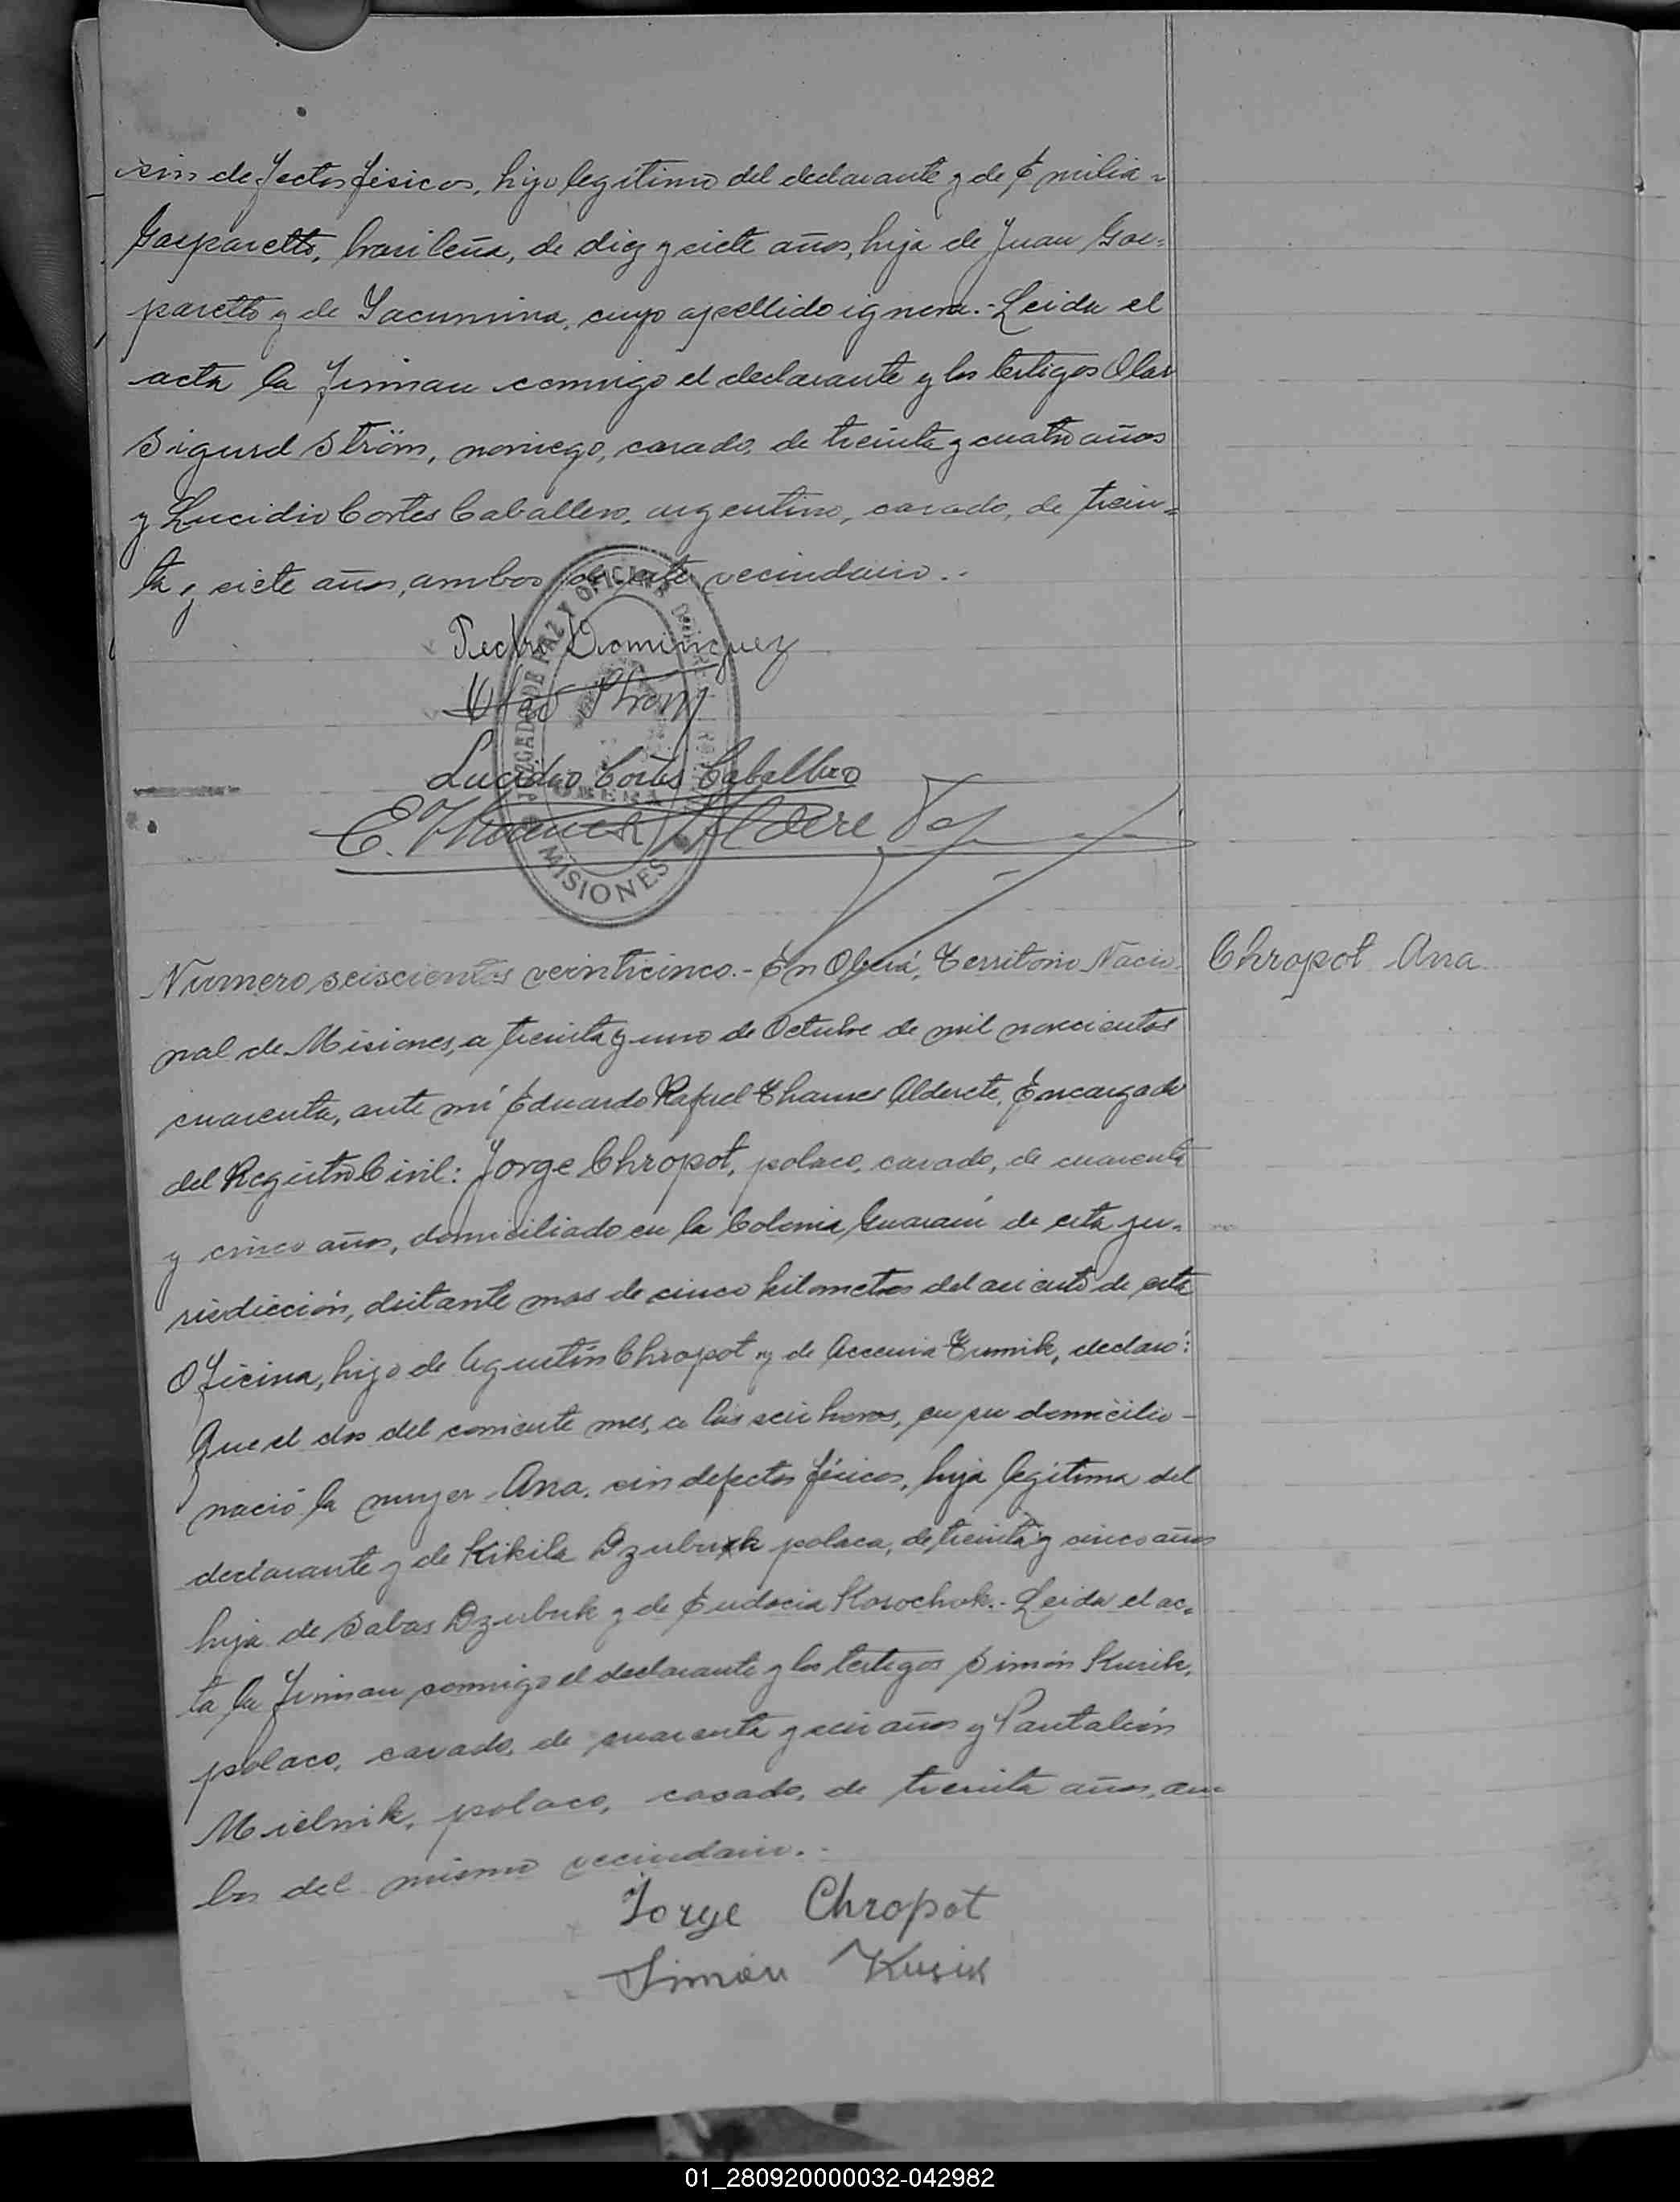 sin defectos físicos, hijo legítimo del declarante y de Emilia =
Gasparetto, brasileña, de diez y siete años, hija de Juan Gas=
paretto y de Yacumina, cuyo apellido ignora.- Leida el
acta la firman conmigo el declarante y los testigos Olav
Sigurd Ström, noruego, casado, de treinta y cuatro años
y Lucidio Cortes Caballero, argentino, casado, de trein=
ta y siete años, ambos de este vecindario.-
Pedro Dominguez
Olav Strom
Lucidio Cortes Caballero
E. Thames Alderete
JUZGADO DE PAZ Y OFICINA
OBERA
MISIONES
Numero seiscientos veinticinco.- En Oberá, Territorio Nacio- Chropot Ana
nal de Misiones, a treinta y uno de Octubre de mil novecientos
cuarenta, ante mí Eduardo Rafael Thames Alderete, Encargado
del Registro Civil: Jorge Chropot, polaco, casado, de cuarenta
y cinco años, domiciliado en la Colonia Guaraní de esta ju-
risdicción, distante mas de cinco kilometros del asiento de esta
Oficina, hijo de Agustín Chropot y de Accenia Tumik, declaró:
Que el dos del corriente mes, a las seis horas, en su domicilio -
nació la mujer Ana, sin defectos físicos, hija legítima del
declarante y de Kikila Dzubuk polaca, de treinta y cinco años
hija de Sabas Dzubuk y de Eudocia Korochuk.- Leida el ac=
ta la firman conmigo el declarante y los testigos Simón Kusik,
polaco, casado, de cuarenta y seis años y Pantaleón
Mielnik, polaco, casado, de treinta años, am=
bos del mismo vecindario.-
Jorge Chropot
Simón Kusik
01_280920000032-042982